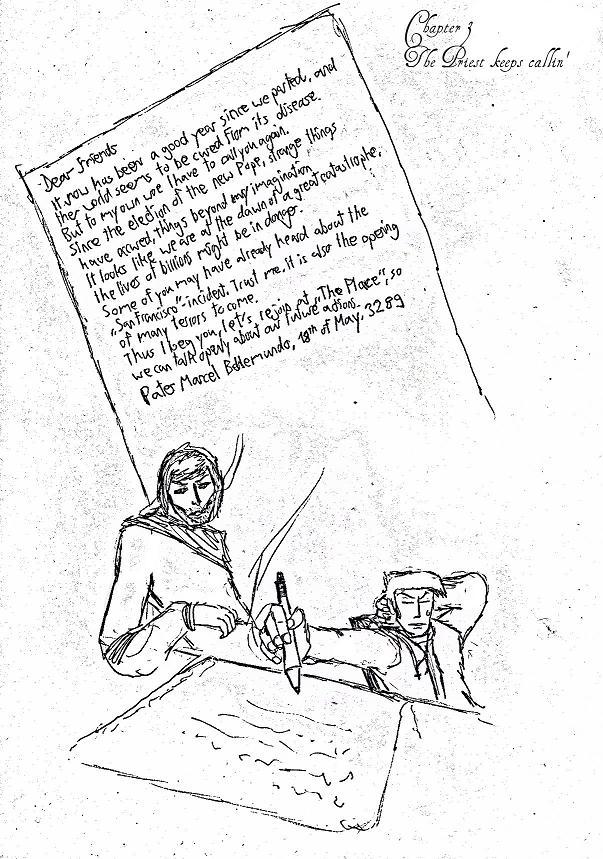 Chapter 3
The Priest keeps callin'
Dear friends
It now has been a good year since we parted, and
the world seems to be cured from its disease.
But to my own woe I have to call you again.
Since the election of the new Pope, strange things
have occured, things beyond any imagination.
It looks like we are at the dawn of a great catastrophe,
the lives of billions might be in danger.
Some of you may have already heard about the
„San Francisco"-incident. Trust me, it is also the opening
of many terrors to come.
Thus I beg you, let's rejoin at „The Place", so
we can talk openly about our future actions.
Pater Marcel Bellemundo, 18th of May. 3289